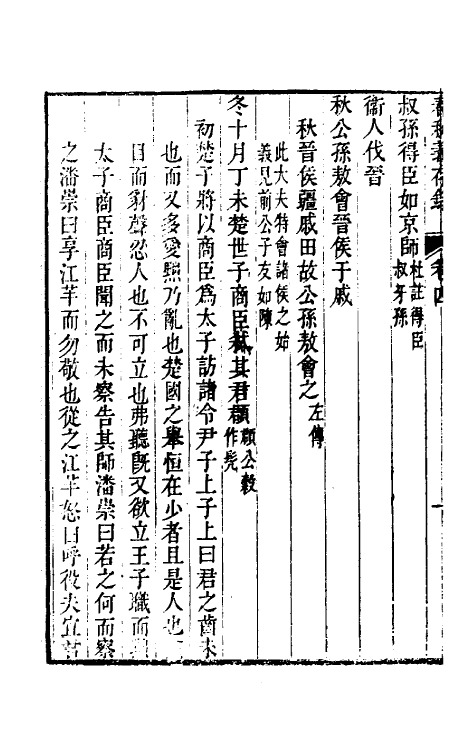 春秋義存錄 卷四
叔孫得臣如京師 杜註得臣叔牙孫
衞人伐晉
秋公孫敖會晉侯于戚
秋晉侯疆戚田故公孫敖會之 左傳
此大夫特會諸侯之始
義見前公子友如陳
冬十月丁未楚世子商臣弒其君頵 頵公穀作髡
初楚子將以商臣爲太子訪諸令尹子上子上曰君之齒未
也而又多愛黜乃亂也楚國之舉恒在少者且是人也
目而豺聲忍人也不可立也弗聽既又欲立王子職而
太子商臣商臣聞之而未察告其師潘崇曰若之何而察
之潘崇曰享江羋而勿敬也從之江羋怒曰呼役夫宜君